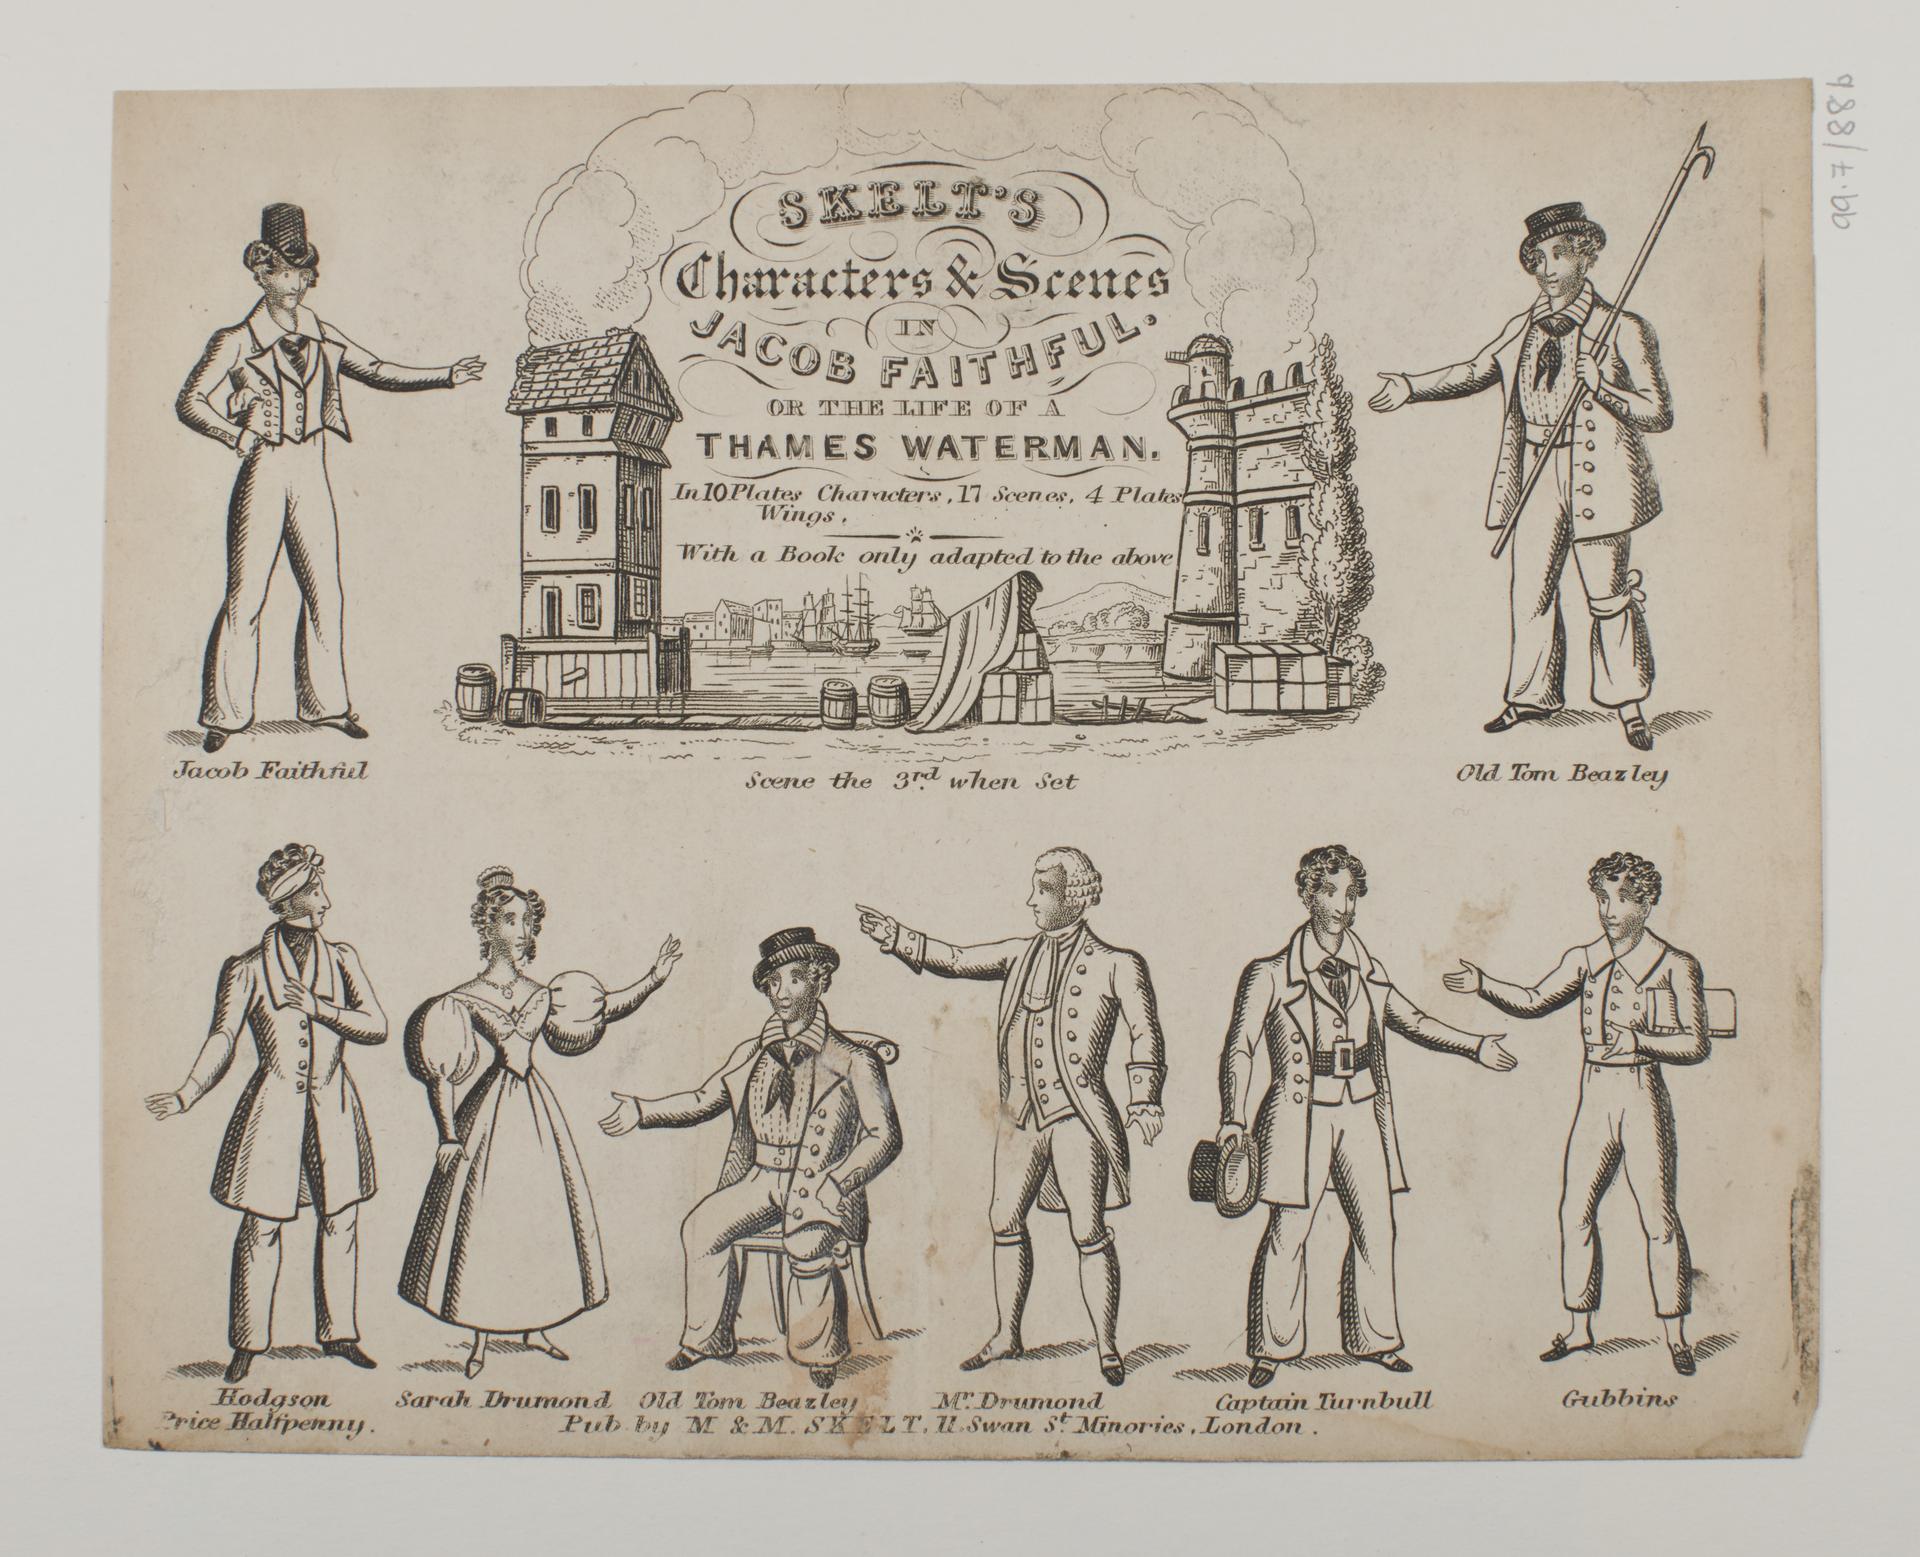 SKELT'S
Characters & Scenes
IN
JACOB FAITHFUL.
OR THE LIFE OF A
THAMES WATERMAN.
In 10 Plates Characters, 17 Scenes, 4 Plates
Wings.
With a Book only adapted to the above
Jacob Faithful
Scene the 3rd. when Set
Old Tom Beazley
Hodgson
Sarah Drumond
Old Tom Beazley
Mr. Drumond
Captain Turnbull
Gubbins
Price Halfpenny.
Pub. by M & M. SKELT. 11. Swan St. Minories, London.
99.7/886